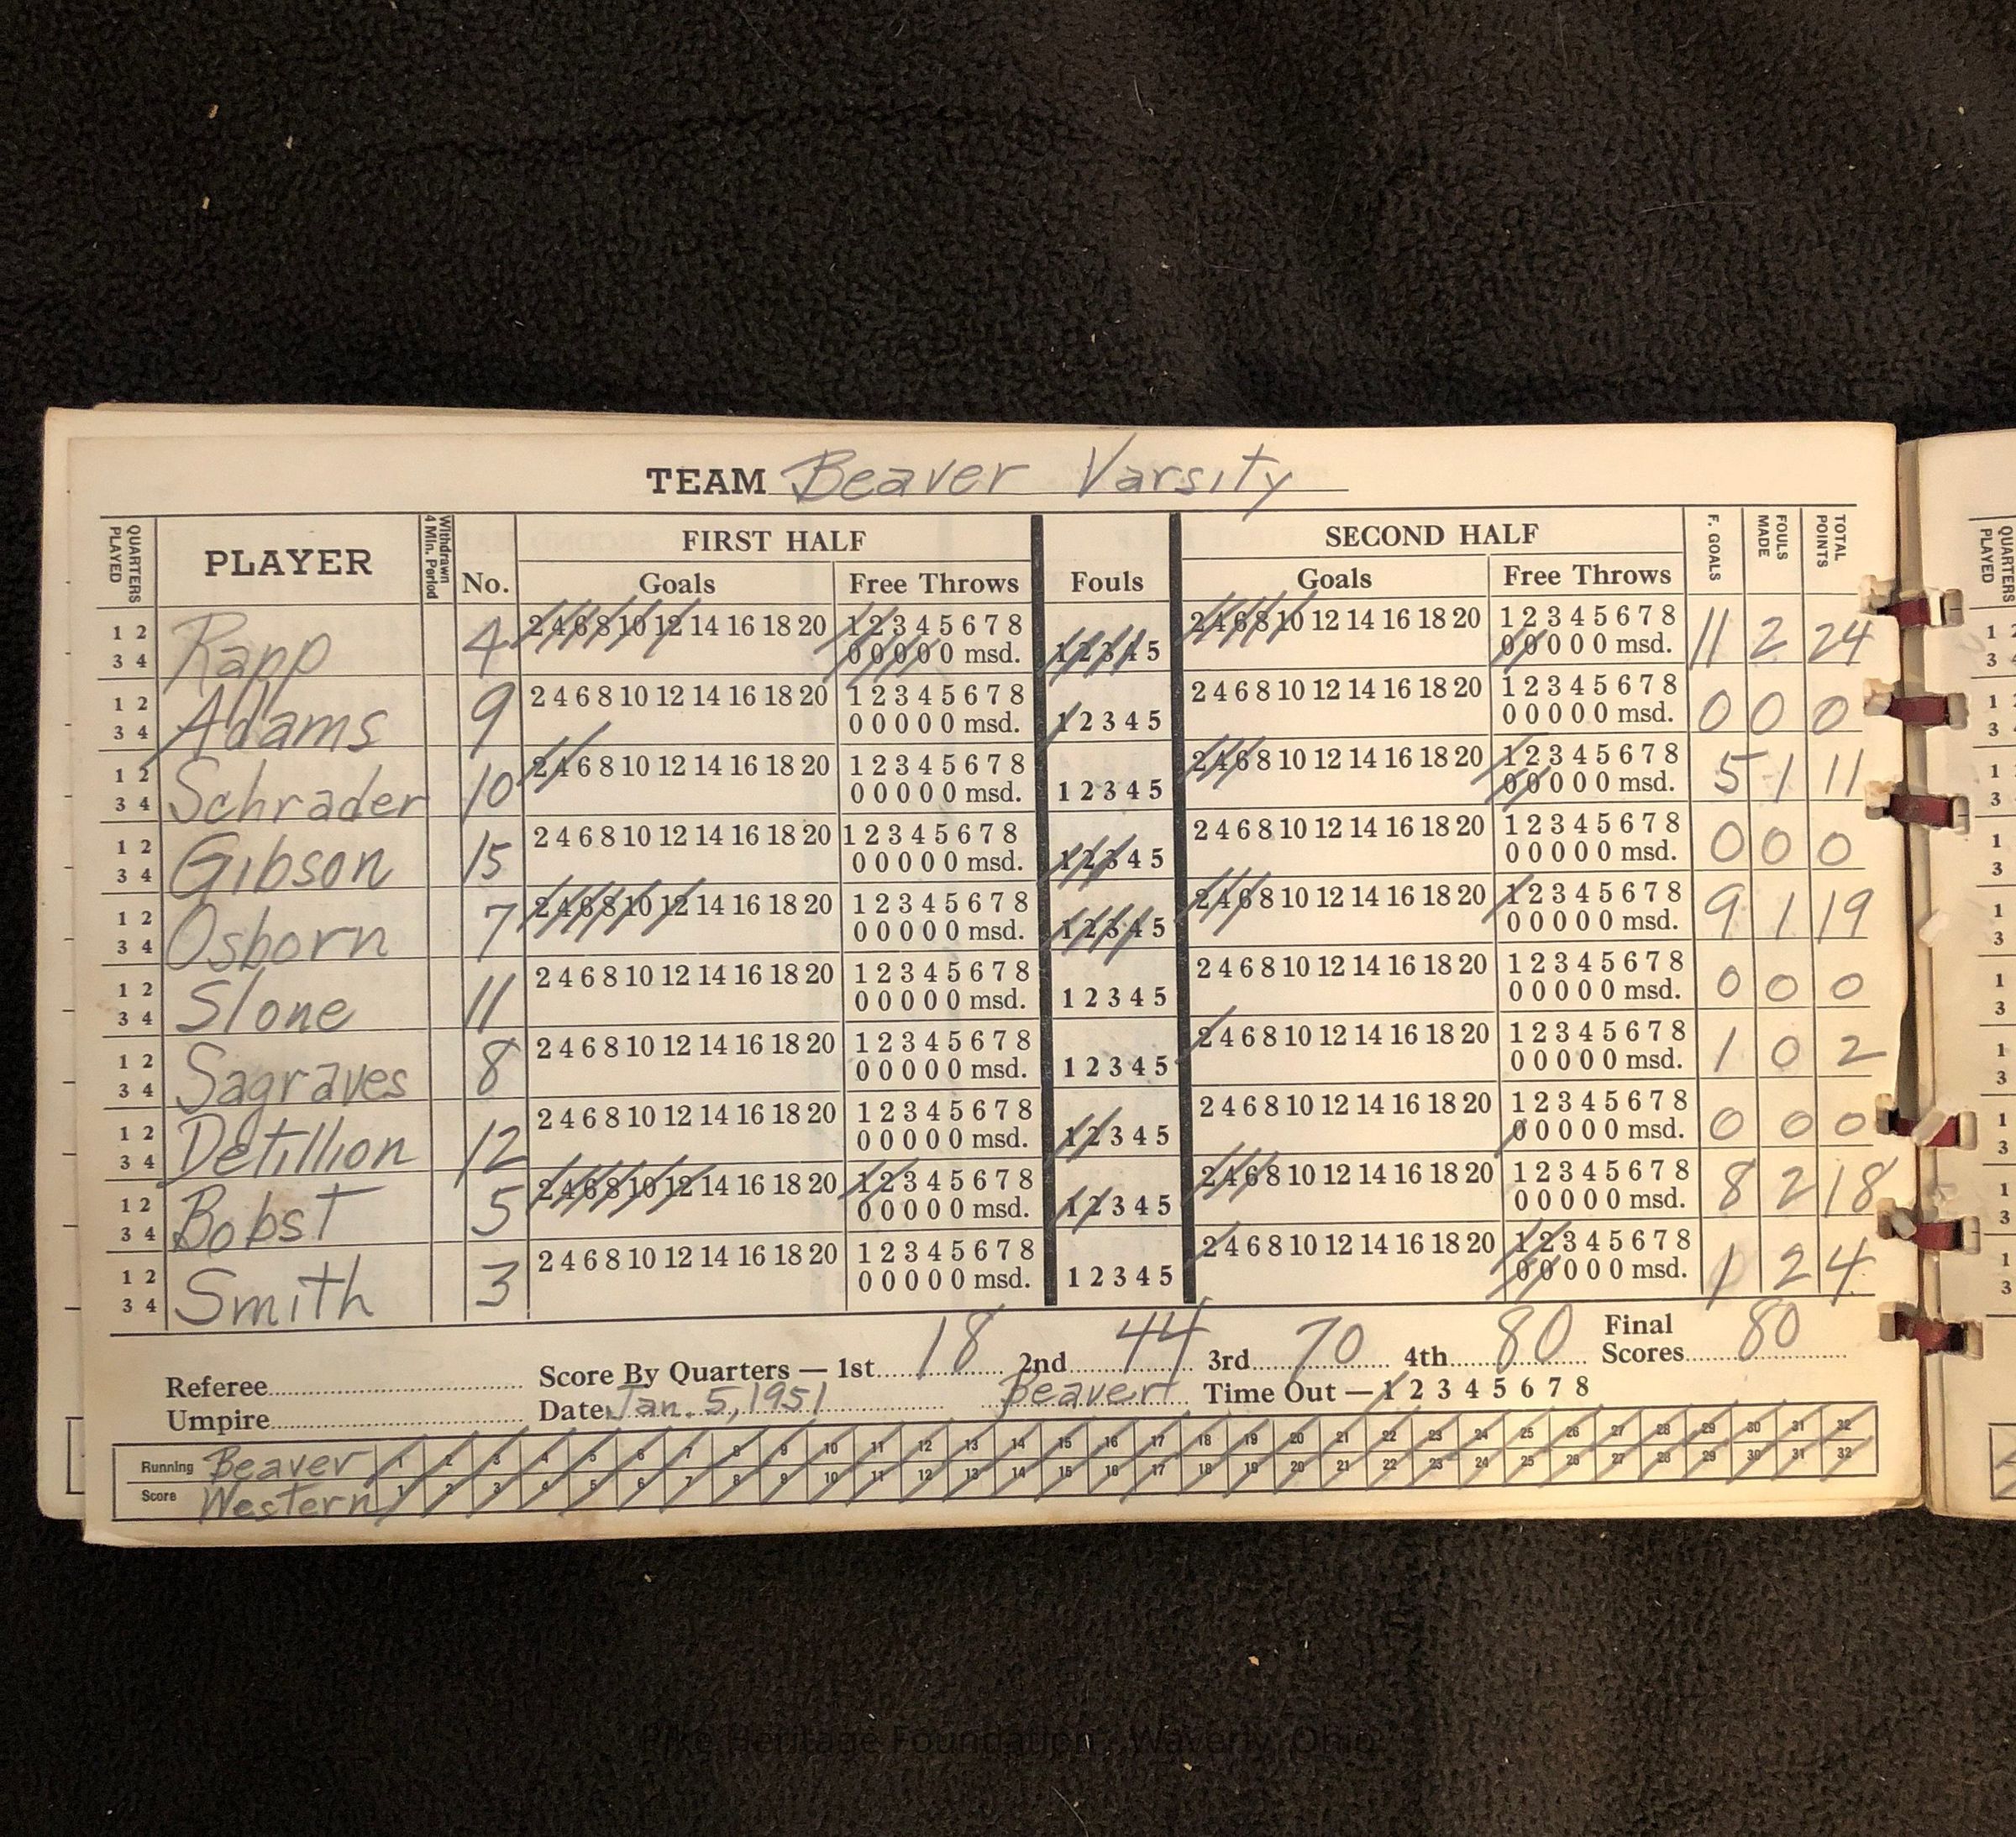 TEAM Beaver Varsity
QUARTERS PLAYED PLAYER Withdrawn 4 Min. Period No. FIRST HALF Goals Free Throws Fouls SECOND HALF Goals Free Throws F. GOALS FOULS MADE TOTAL POINTS
1 2 Rapp 4 2 4 6 8 10 12 14 16 18 20 1 2 3 4 5 6 7 8 2 4 6 8 10 12 14 16 18 20 1 2 3 4 5 6 7 8 11 2 24
3 4 0 0 0 0 0 msd. 1 2 3 4 5 0 0 0 0 0 msd.
1 2 Adams 9 2 4 6 8 10 12 14 16 18 20 1 2 3 4 5 6 7 8 2 4 6 8 10 12 14 16 18 20 1 2 3 4 5 6 7 8 0 0 0
3 4 0 0 0 0 0 msd. 1 2 3 4 5 0 0 0 0 0 msd.
1 2 Schrader 10 2 4 6 8 10 12 14 16 18 20 1 2 3 4 5 6 7 8 2 4 6 8 10 12 14 16 18 20 1 2 3 4 5 6 7 8 5 1 11
3 4 0 0 0 0 0 msd. 1 2 3 4 5 0 0 0 0 0 msd.
1 2 Gibson 15 2 4 6 8 10 12 14 16 18 20 1 2 3 4 5 6 7 8 2 4 6 8 10 12 14 16 18 20 1 2 3 4 5 6 7 8 0 0 0
3 4 0 0 0 0 0 msd. 1 2 3 4 5 0 0 0 0 0 msd.
1 2 Osborn 7 2 4 6 8 10 12 14 16 18 20 1 2 3 4 5 6 7 8 2 4 6 8 10 12 14 16 18 20 1 2 3 4 5 6 7 8 9 1 19
3 4 0 0 0 0 0 msd. 1 2 3 4 5 0 0 0 0 0 msd.
1 2 Slone 11 2 4 6 8 10 12 14 16 18 20 1 2 3 4 5 6 7 8 2 4 6 8 10 12 14 16 18 20 1 2 3 4 5 6 7 8 0 0 0
3 4 0 0 0 0 0 msd. 1 2 3 4 5 0 0 0 0 0 msd.
1 2 Sagraves 8 2 4 6 8 10 12 14 16 18 20 1 2 3 4 5 6 7 8 2 4 6 8 10 12 14 16 18 20 1 2 3 4 5 6 7 8 1 0 2
3 4 0 0 0 0 0 msd. 1 2 3 4 5 0 0 0 0 0 msd.
1 2 Detillion 12 2 4 6 8 10 12 14 16 18 20 1 2 3 4 5 6 7 8 2 4 6 8 10 12 14 16 18 20 1 2 3 4 5 6 7 8 0 0 0
3 4 0 0 0 0 0 msd. 1 2 3 4 5 0 0 0 0 0 msd.
1 2 Bobst 5 2 4 6 8 10 12 14 16 18 20 1 2 3 4 5 6 7 8 2 4 6 8 10 12 14 16 18 20 1 2 3 4 5 6 7 8 8 2 18
3 4 0 0 0 0 0 msd. 1 2 3 4 5 0 0 0 0 0 msd.
1 2 Smith 3 2 4 6 8 10 12 14 16 18 20 1 2 3 4 5 6 7 8 2 4 6 8 10 12 14 16 18 20 1 2 3 4 5 6 7 8 1 2 4
3 4 0 0 0 0 0 msd. 1 2 3 4 5 0 0 0 0 0 msd.
Referee Score By Quarters — 1st 18 2nd 44 3rd 70 4th 80 Final Scores 80
Umpire Date Jan. 5, 1951 Beaver Time Out — 1 2 3 4 5 6 7 8
Running Beaver 1 2 3 4 5 6 7 8 9 10 11 12 13 14 15 16 17 18 19 20 21 22 23 24 25 26 27 28 29 30 31 32
Score Western 1 2 3 4 5 6 7 8 9 10 11 12 13 14 15 16 17 18 19 20 21 22 23 24 25 26 27 28 29 30 31 32
QUARTERS PLAYED
Pike Heritage Foundation, Waverly, Ohio